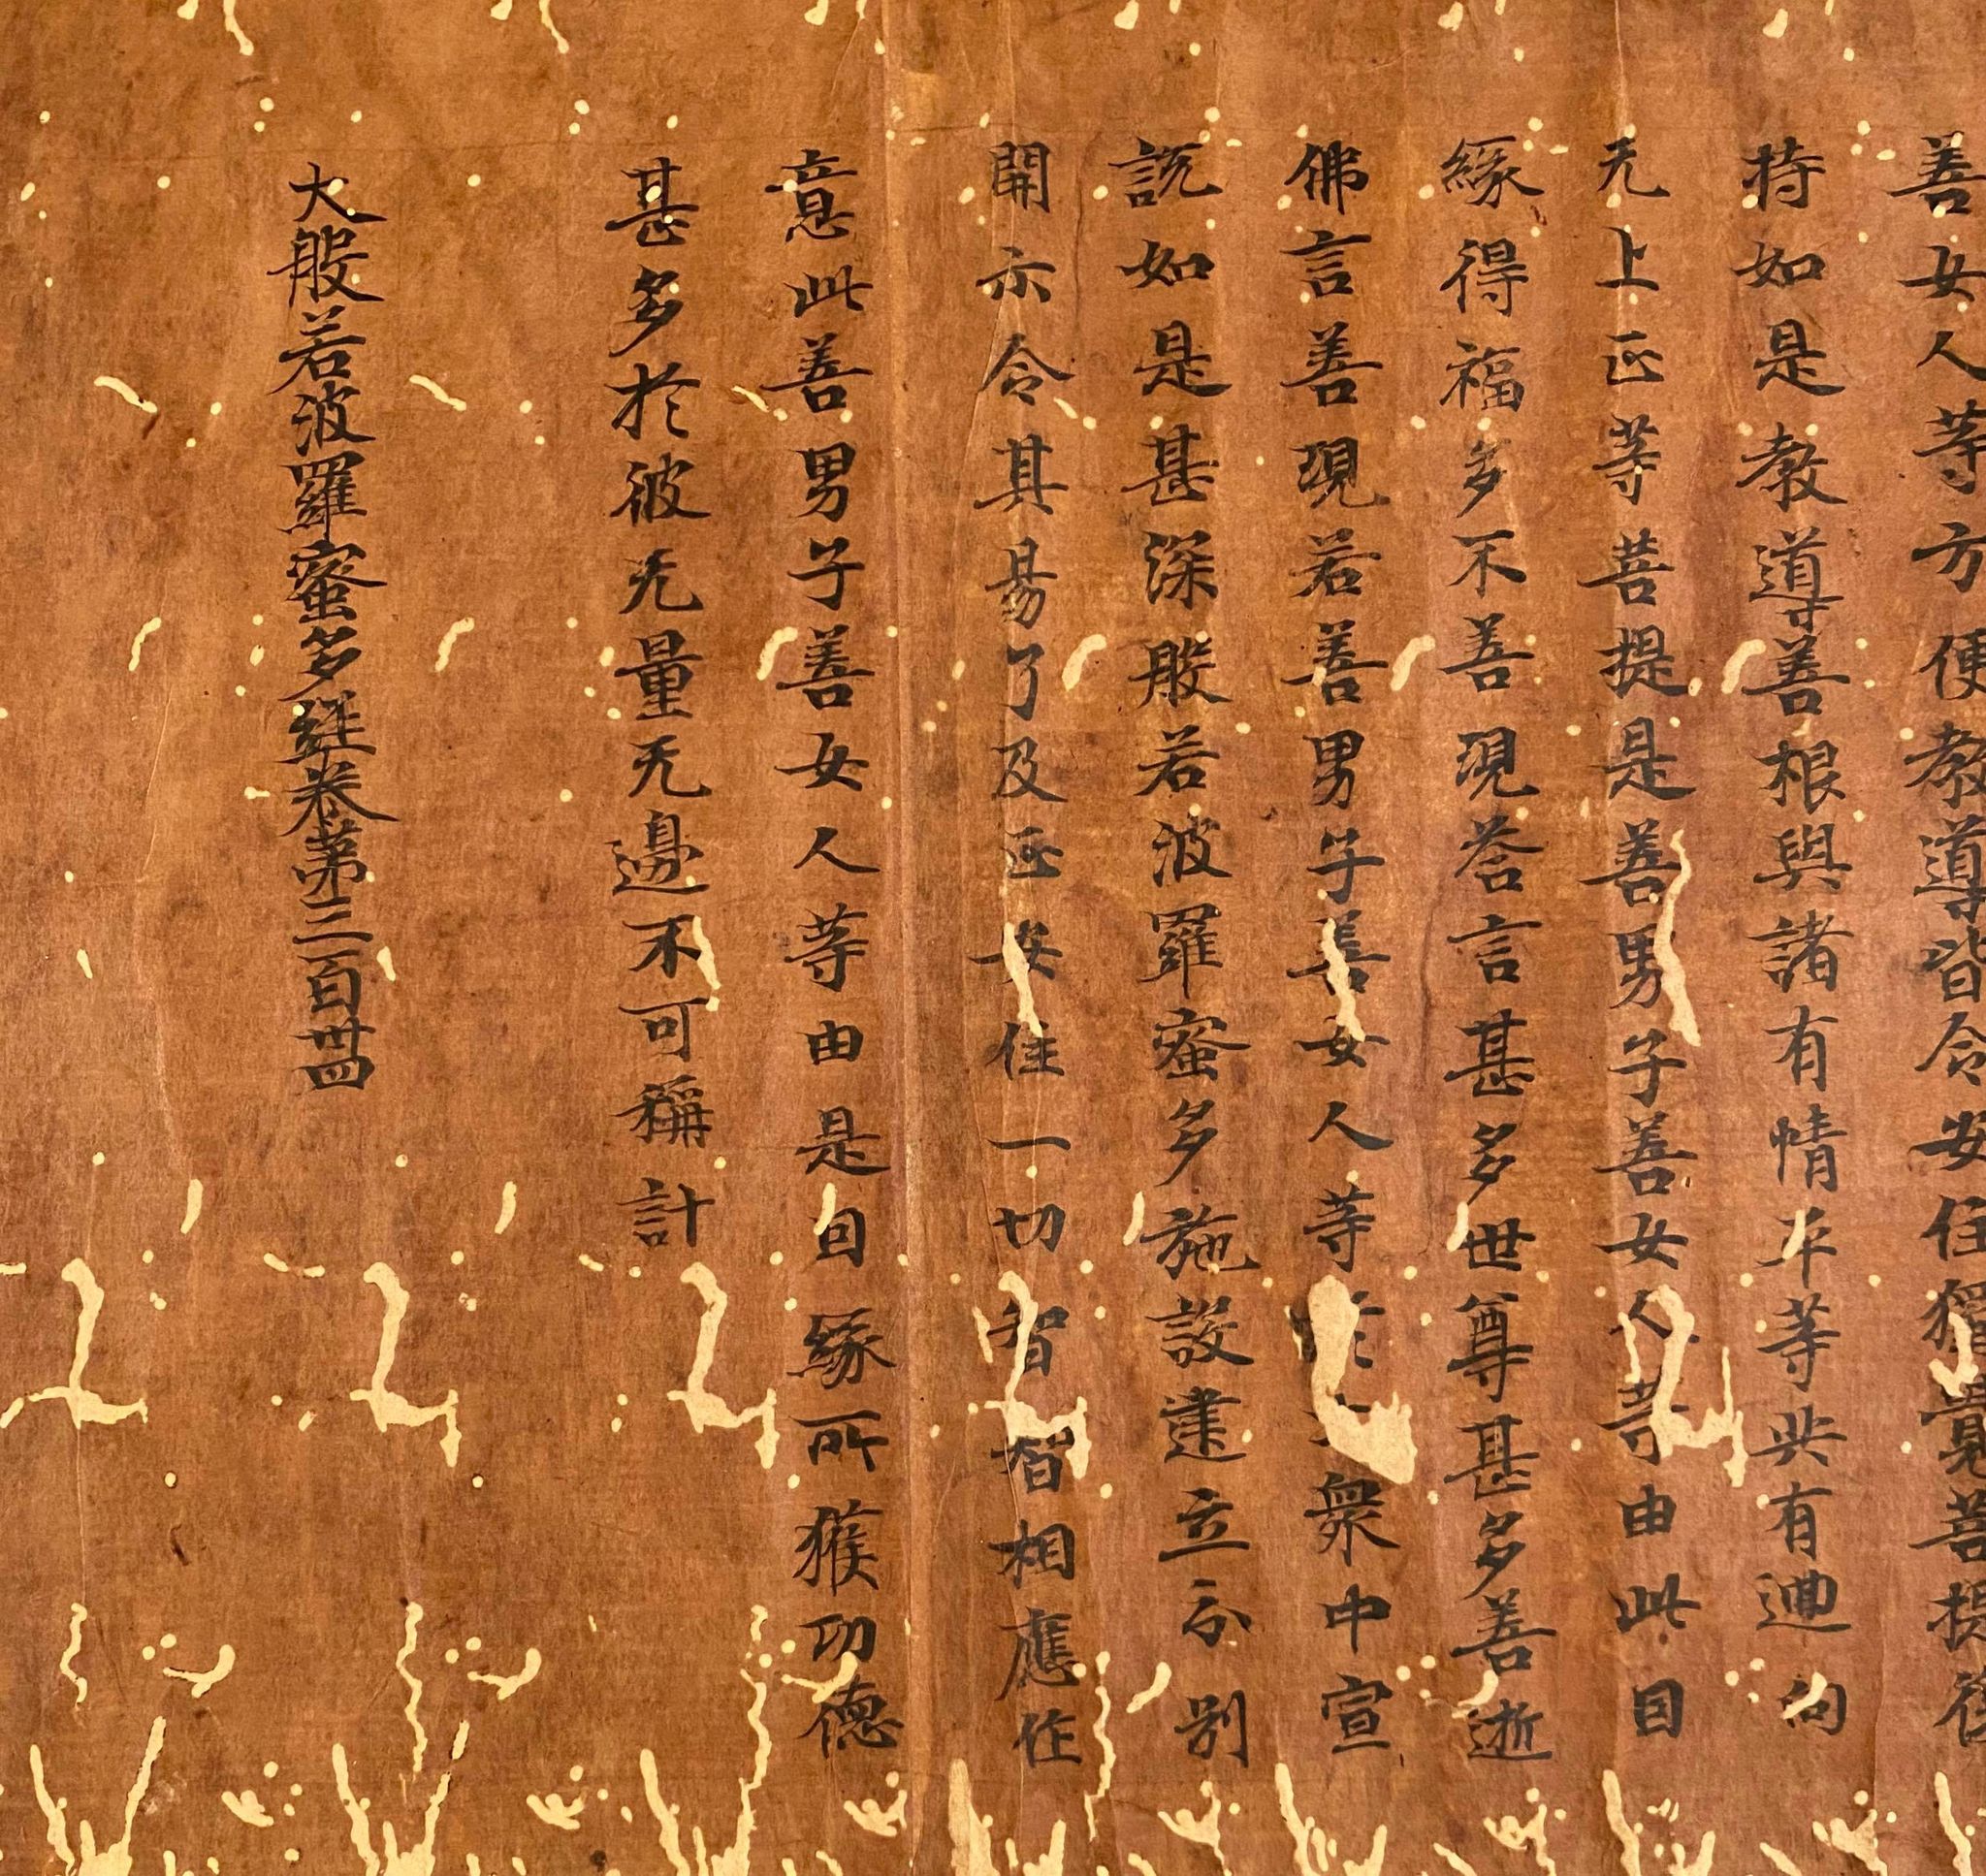 善女人等方便教導皆令安住獨覺菩提復
持如是教導善根與諸有情平等共有迴向
无上正等菩提是善男子善女人等由此因
緣得福多不善現荅言甚多世尊甚多善逝
佛言善現若善男子善女人等衆中宣
說如是甚深般若波羅蜜多施設建立分別
開示令其易了及正安住一切智智相應作
意此善男子善女人等由是因緣所獲功德
甚多於彼无量无邊不可稱計
大般若波羅蜜多經卷第三百卌四